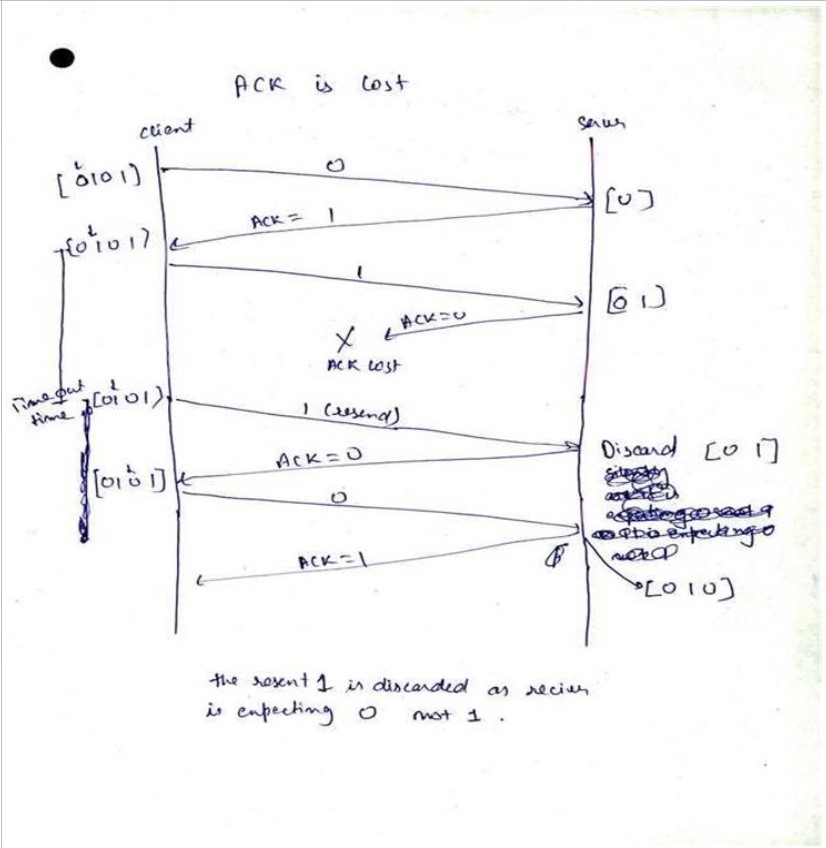 ACK is lost
client
server
[0101)
0
[0]
ACK = 1
{0101)
1
[01]
ACK=0
X
ACK lost
Timeout
time
[0101)
1 (resend)
Discard [01]
ACK=0
[0101]
0
ACK=1
[010]
the resent 1 is discarded as reciver
is expecting 0 not 1.